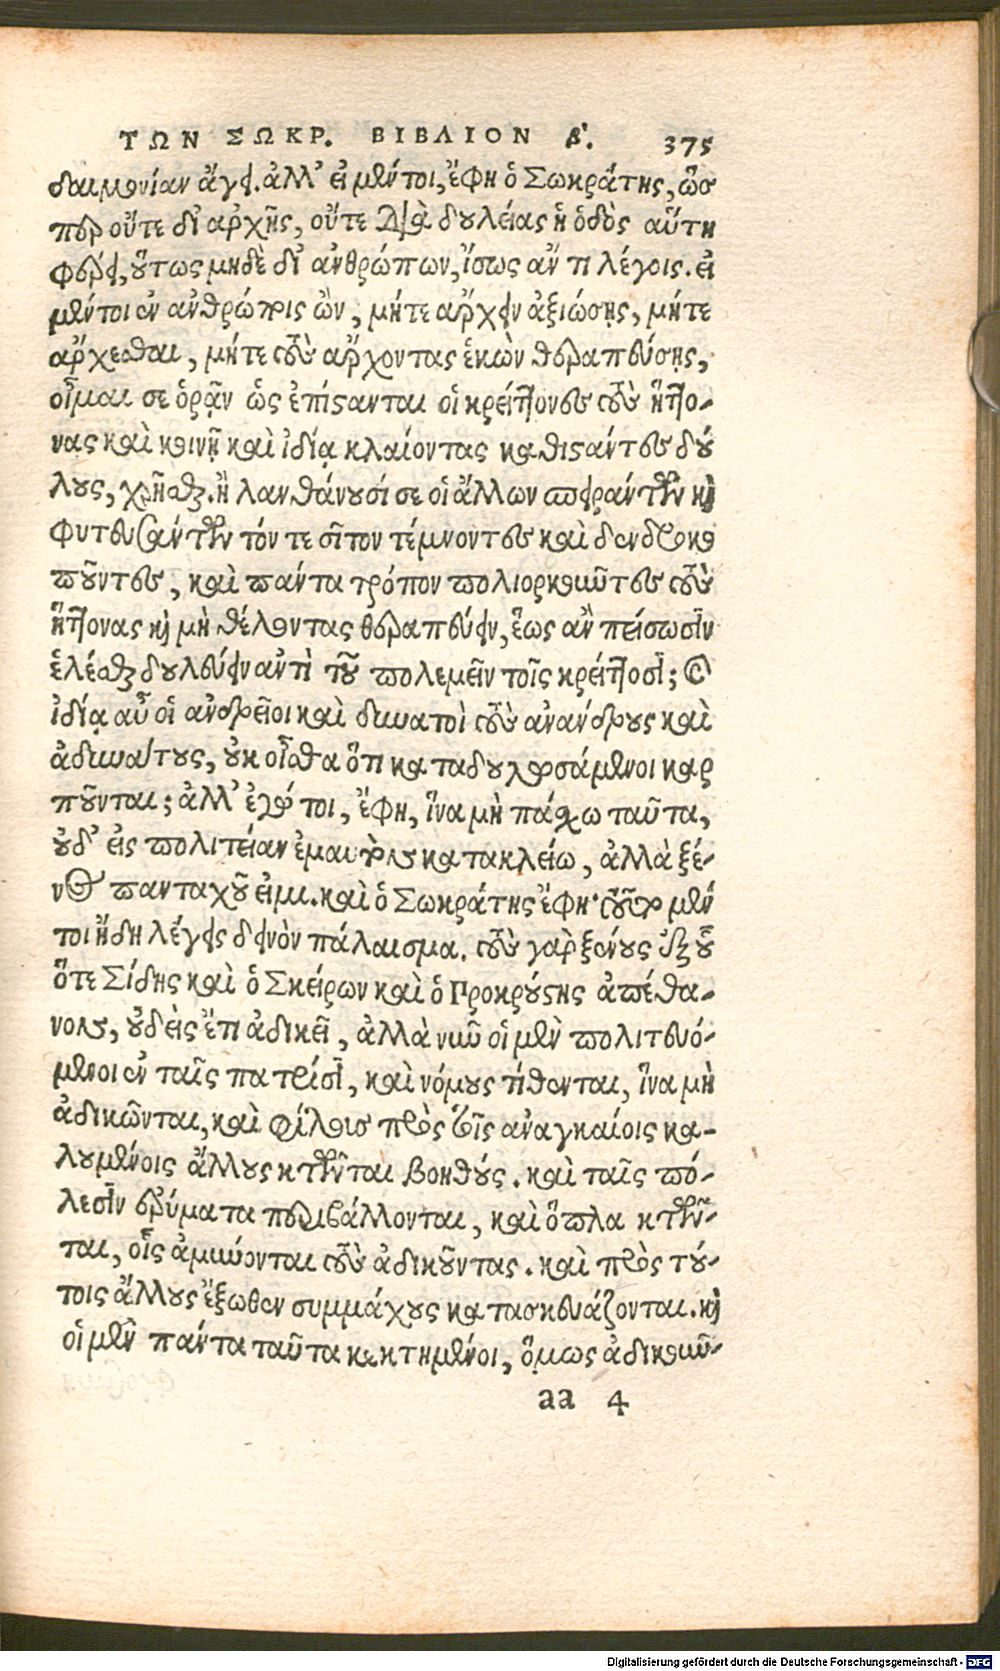 ΤΩΝ ΣΩΚΡ. ΒΙΒΛΙΟΝ β'. 375
δαιμονίαν ἄγει. ἀλλ' εἰ μέντοι, ἔφη ὁ Σωκράτης, ὥσ
περ οὔτε δι' ἀρχῆς, οὔτε διὰ δουλείας ἡ ὁδὸς αὕτη
φέρει, οὕτως μηδὲ δι' ἀνθρώπων, ἴσως ἄν τι λέγοις. εἰ
μέντοι ἐν ἀνθρώποις ὢν, μήτε ἄρχειν ἀξιώσῃς, μήτε
ἄρχεσθαι, μήτε τοὺς ἄρχοντας ἑκὼν θεραπεύσῃς,
οἶμαι σε ὁρᾷν ὡς ἐπίστανται οἱ κρείττονες τοὺς ἥττο-
νας καὶ κοινῇ καὶ ἰδίᾳ κλαίοντας καθιστάντες δού
λους, χρῆσθαι. ἢ λανθάνουσί σε οἱ ἄλλων σπειράντων καὶ
φυτευσάντων τόν τε σῖτον τέμνοντες καὶ δενδροκο
ποῦντες, καὶ πάντα τρόπον πολιορκοῦντες τοὺς
ἥττονας καὶ μὴ θέλοντας θεραπεύειν, ἕως ἂν πείσωσιν
ἑλέσθαι δουλεύειν ἀντὶ τοῦ πολεμεῖν τοῖς κρείττοσι; καὶ
ἰδίᾳ αὖ οἱ ἀνδρεῖοι καὶ δυνατοὶ τοὺς ἀνάνδρους καὶ
ἀδυνάτους, οὐκ οἶσθα ὅτι καταδουλωσάμενοι καρ
ποῦνται; ἀλλ' ἐγώ τοι, ἔφη, ἵνα μὴ πάσχω ταῦτα,
οὐδ' εἰς πολιτείαν ἐμαυτὸν κατακλείω, ἀλλὰ ξέ-
νος πανταχοῦ εἰμι. καὶ ὁ Σωκράτης ἔφη· τοῦτο μέν
τοι ἤδη λέγεις δεινὸν πάλαισμα. τοὺς γὰρ ξένους ἐξ οὗ
ὅτε Σίδης καὶ ὁ Σκείρων καὶ ὁ Προκρούστης ἀπέθα-
νον, οὐδεὶς ἔτι ἀδικεῖ, ἀλλὰ νῦν οἱ μὲν πολιτευό-
μενοι ἐν ταῖς πατρίσι, καὶ νόμους τίθενται, ἵνα μὴ
ἀδικῶνται, καὶ φίλους πρὸς τοῖς ἀναγκαίοις κα-
λουμένοις ἄλλους κτῶνται βοηθούς. καὶ ταῖς πό-
λεσιν ἐρύματα περιβάλλονται, καὶ ὅπλα κτῶν-
ται, οἷς ἀμύονται τοὺς ἀδικοῦντας. καὶ πρὸς τού-
τοις ἄλλους ἔξωθεν συμμάχους κατασκευάζονται. καὶ
οἱ μὲν πάντα ταῦτα κεκτημένοι, ὅμως ἀδικοῦν-
aa 4
Digitalisierung gefördert durch die Deutsche Forschungsgemeinschaft - DFG